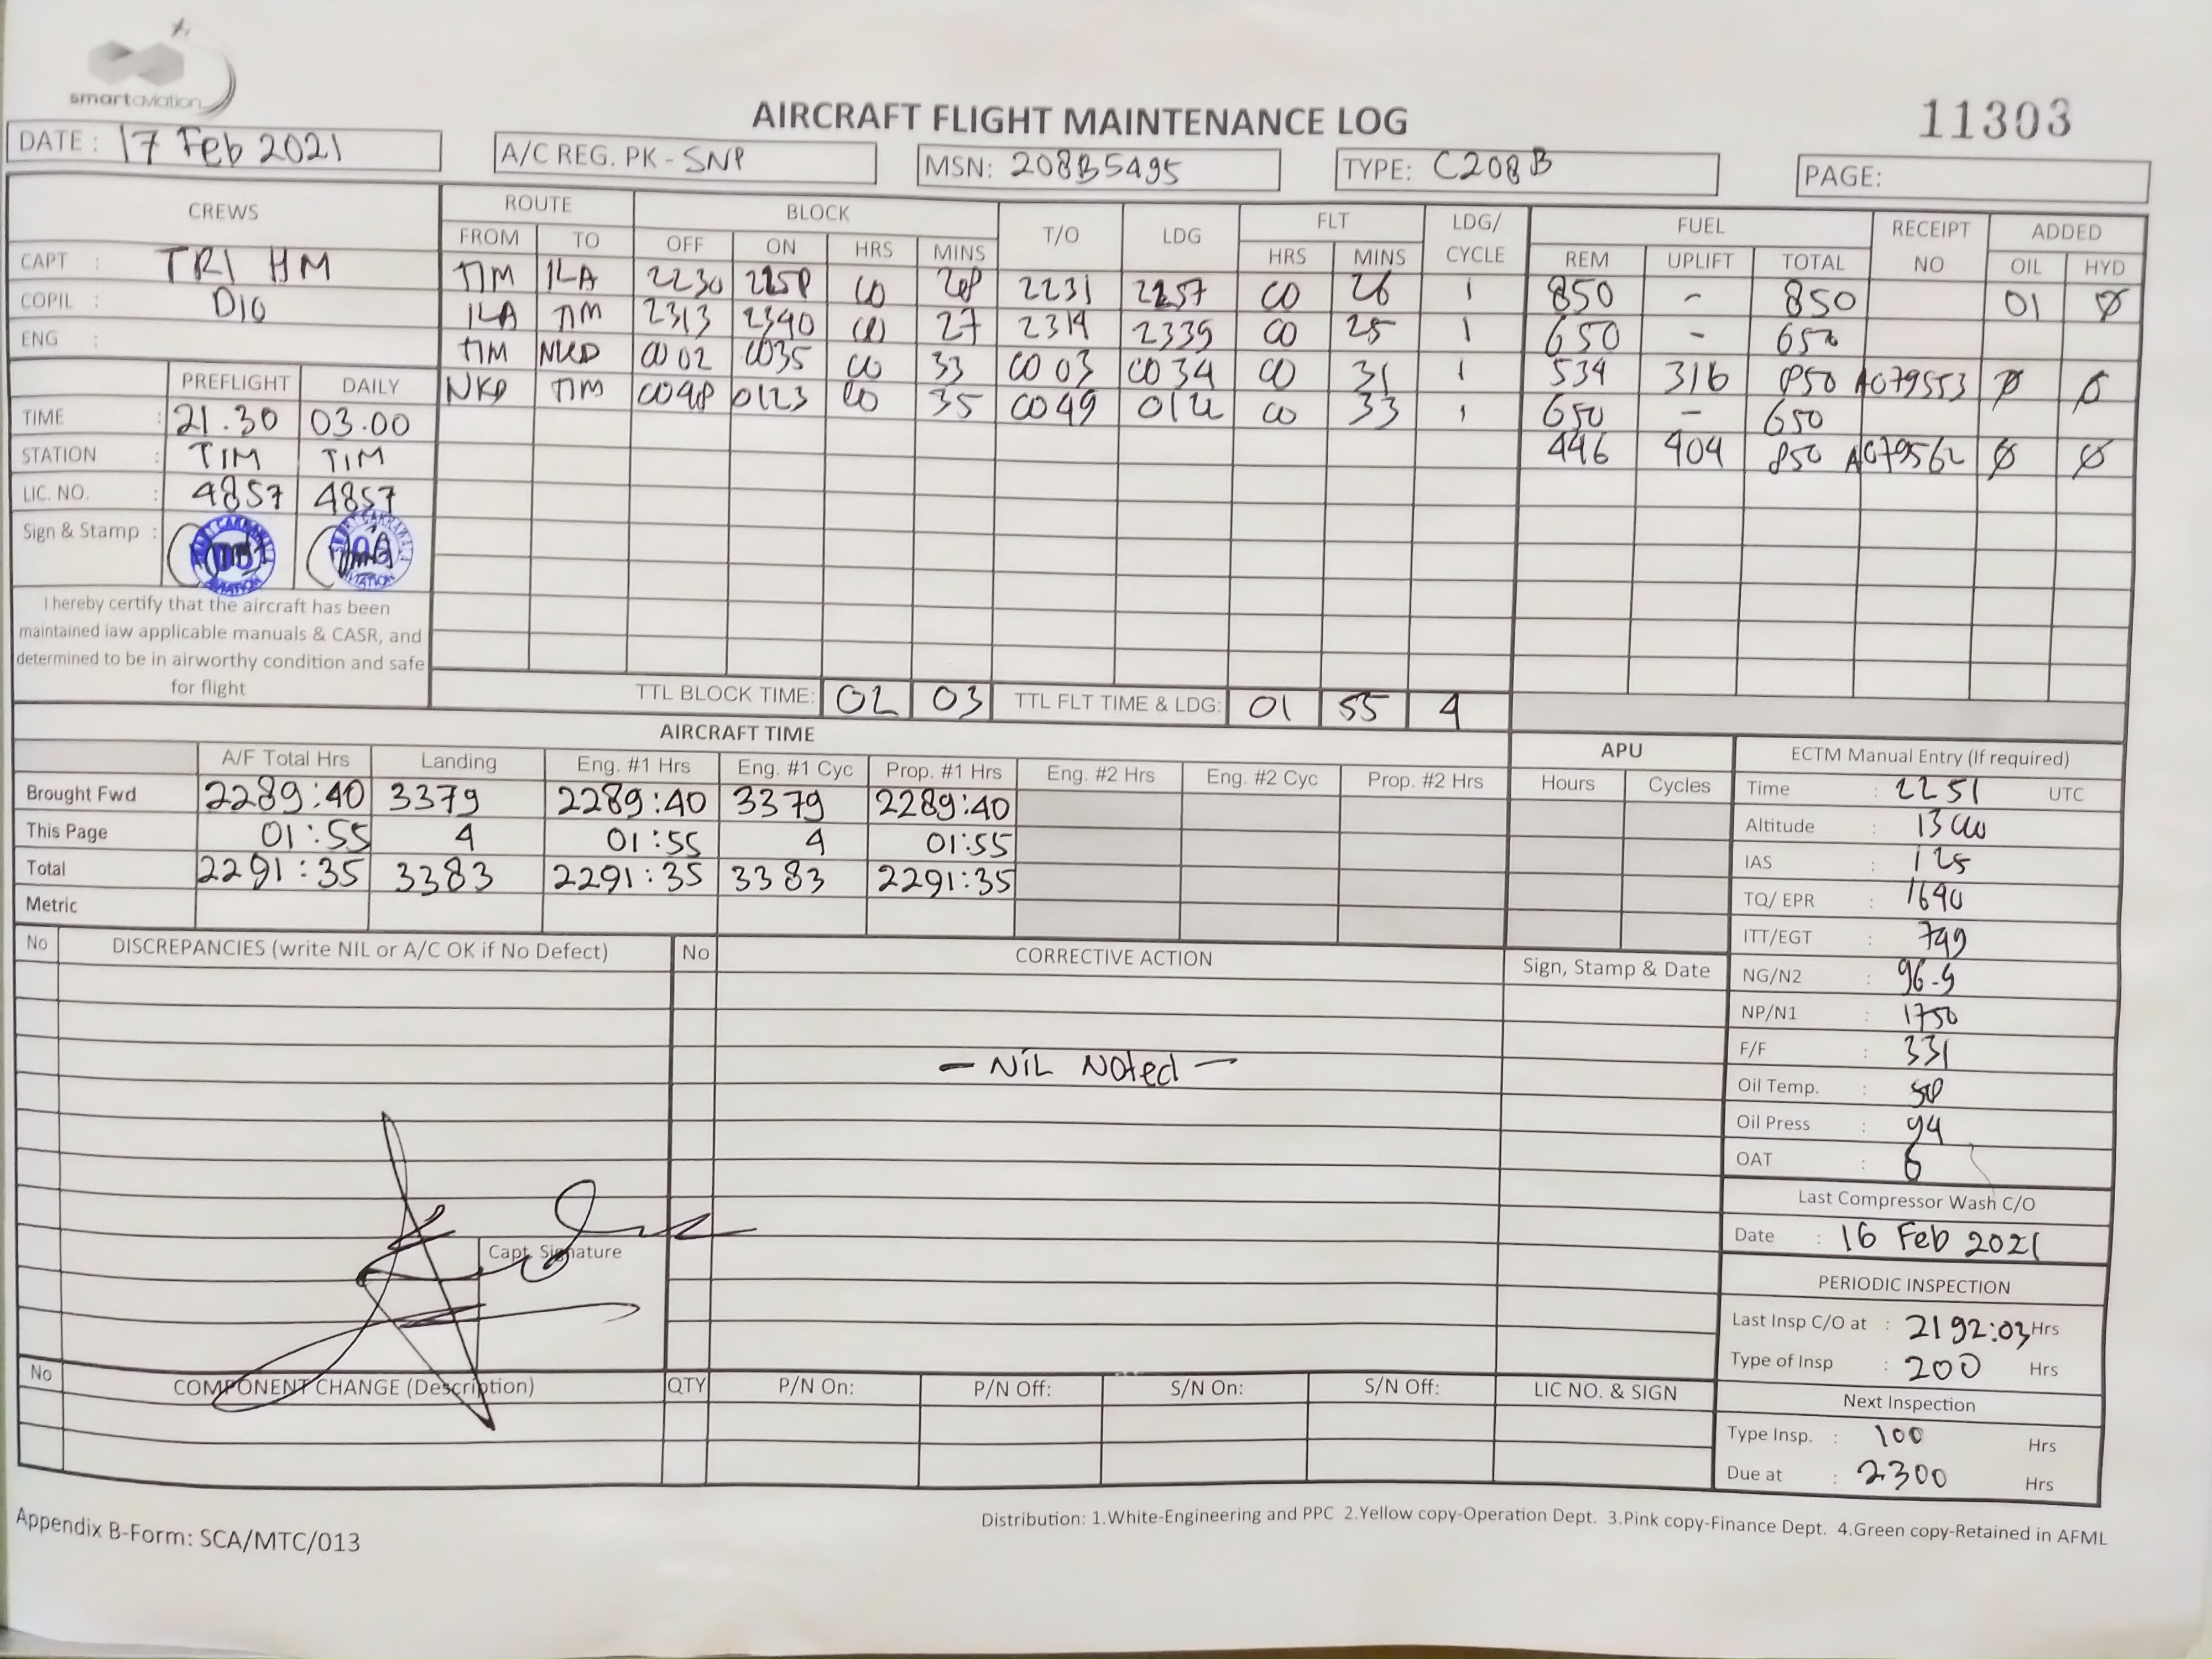 smartaviation
AIRCRAFT FLIGHT MAINTENANCE LOG
11303
DATE : 17 Feb 2021
A/C REG. PK - SNP
MSN: 208B5495
TYPE: C208B
PAGE:
CREWS
ROUTE BLOCK T/O LDG FLT LDG/ CYCLE FUEL RECEIPT NO ADDED
FROM TO OFF ON HRS MINS HRS MINS REM UPLIFT TOTAL OIL HYD
CAPT : TRI HM
COPIL : DIO
ENG :
TIM ILA 2230 2258 00 28 2231 2257 00 26 1 850 - 850 01 Ø
ILA TIM 2313 2340 00 27 2314 2339 00 25 1 650 - 650
TIM NKD 0002 0035 00 33 0003 0034 00 31 1 534 316 850 A079553 Ø Ø
NKD TIM 0048 0123 00 35 0049 0122 00 33 1 650 - 650
446 404 850 A079562 Ø Ø
PREFLIGHT DAILY
TIME : 21.30 03.00
STATION : TIM TIM
LIC. NO. : 4857 4857
Sign & Stamp :
I hereby certify that the aircraft has been
maintained iaw applicable manuals & CASR, and
determined to be in airworthy condition and safe
for flight
TTL BLOCK TIME: 02 03 TTL FLT TIME & LDG: 01 55 4
AIRCRAFT TIME
A/F Total Hrs Landing Eng. #1 Hrs Eng. #1 Cyc Prop. #1 Hrs Eng. #2 Hrs Eng. #2 Cyc Prop. #2 Hrs
Brought Fwd 2289:40 3379 2289:40 3379 2289:40
This Page 01:55 4 01:55 4 01:55
Total 2291:35 3383 2291:35 3383 2291:35
Metric
APU
Hours Cycles
ECTM Manual Entry (If required)
Time : 2251 UTC
Altitude : 13000
IAS : 125
TQ/ EPR : 1640
ITT/EGT : 749
NG/N2 : 96.9
NP/N1 : 1750
F/F : 331
Oil Temp. : 58
Oil Press : 94
OAT : 6
Last Compressor Wash C/O
Date : 16 Feb 2021
PERIODIC INSPECTION
Last Insp C/O at : 2192:03 Hrs
Type of Insp : 200 Hrs
Next Inspection
Type Insp. : 100 Hrs
Due at : 2300 Hrs
No DISCREPANCIES (write NIL or A/C OK if No Defect) No CORRECTIVE ACTION Sign, Stamp & Date
— NIL Noted —
Capt. Signature
No COMPONENT CHANGE (Description) QTY P/N On: P/N Off: S/N On: S/N Off: LIC NO. & SIGN
Appendix B-Form: SCA/MTC/013
Distribution: 1.White-Engineering and PPC 2.Yellow copy-Operation Dept. 3.Pink copy-Finance Dept. 4.Green copy-Retained in AFML